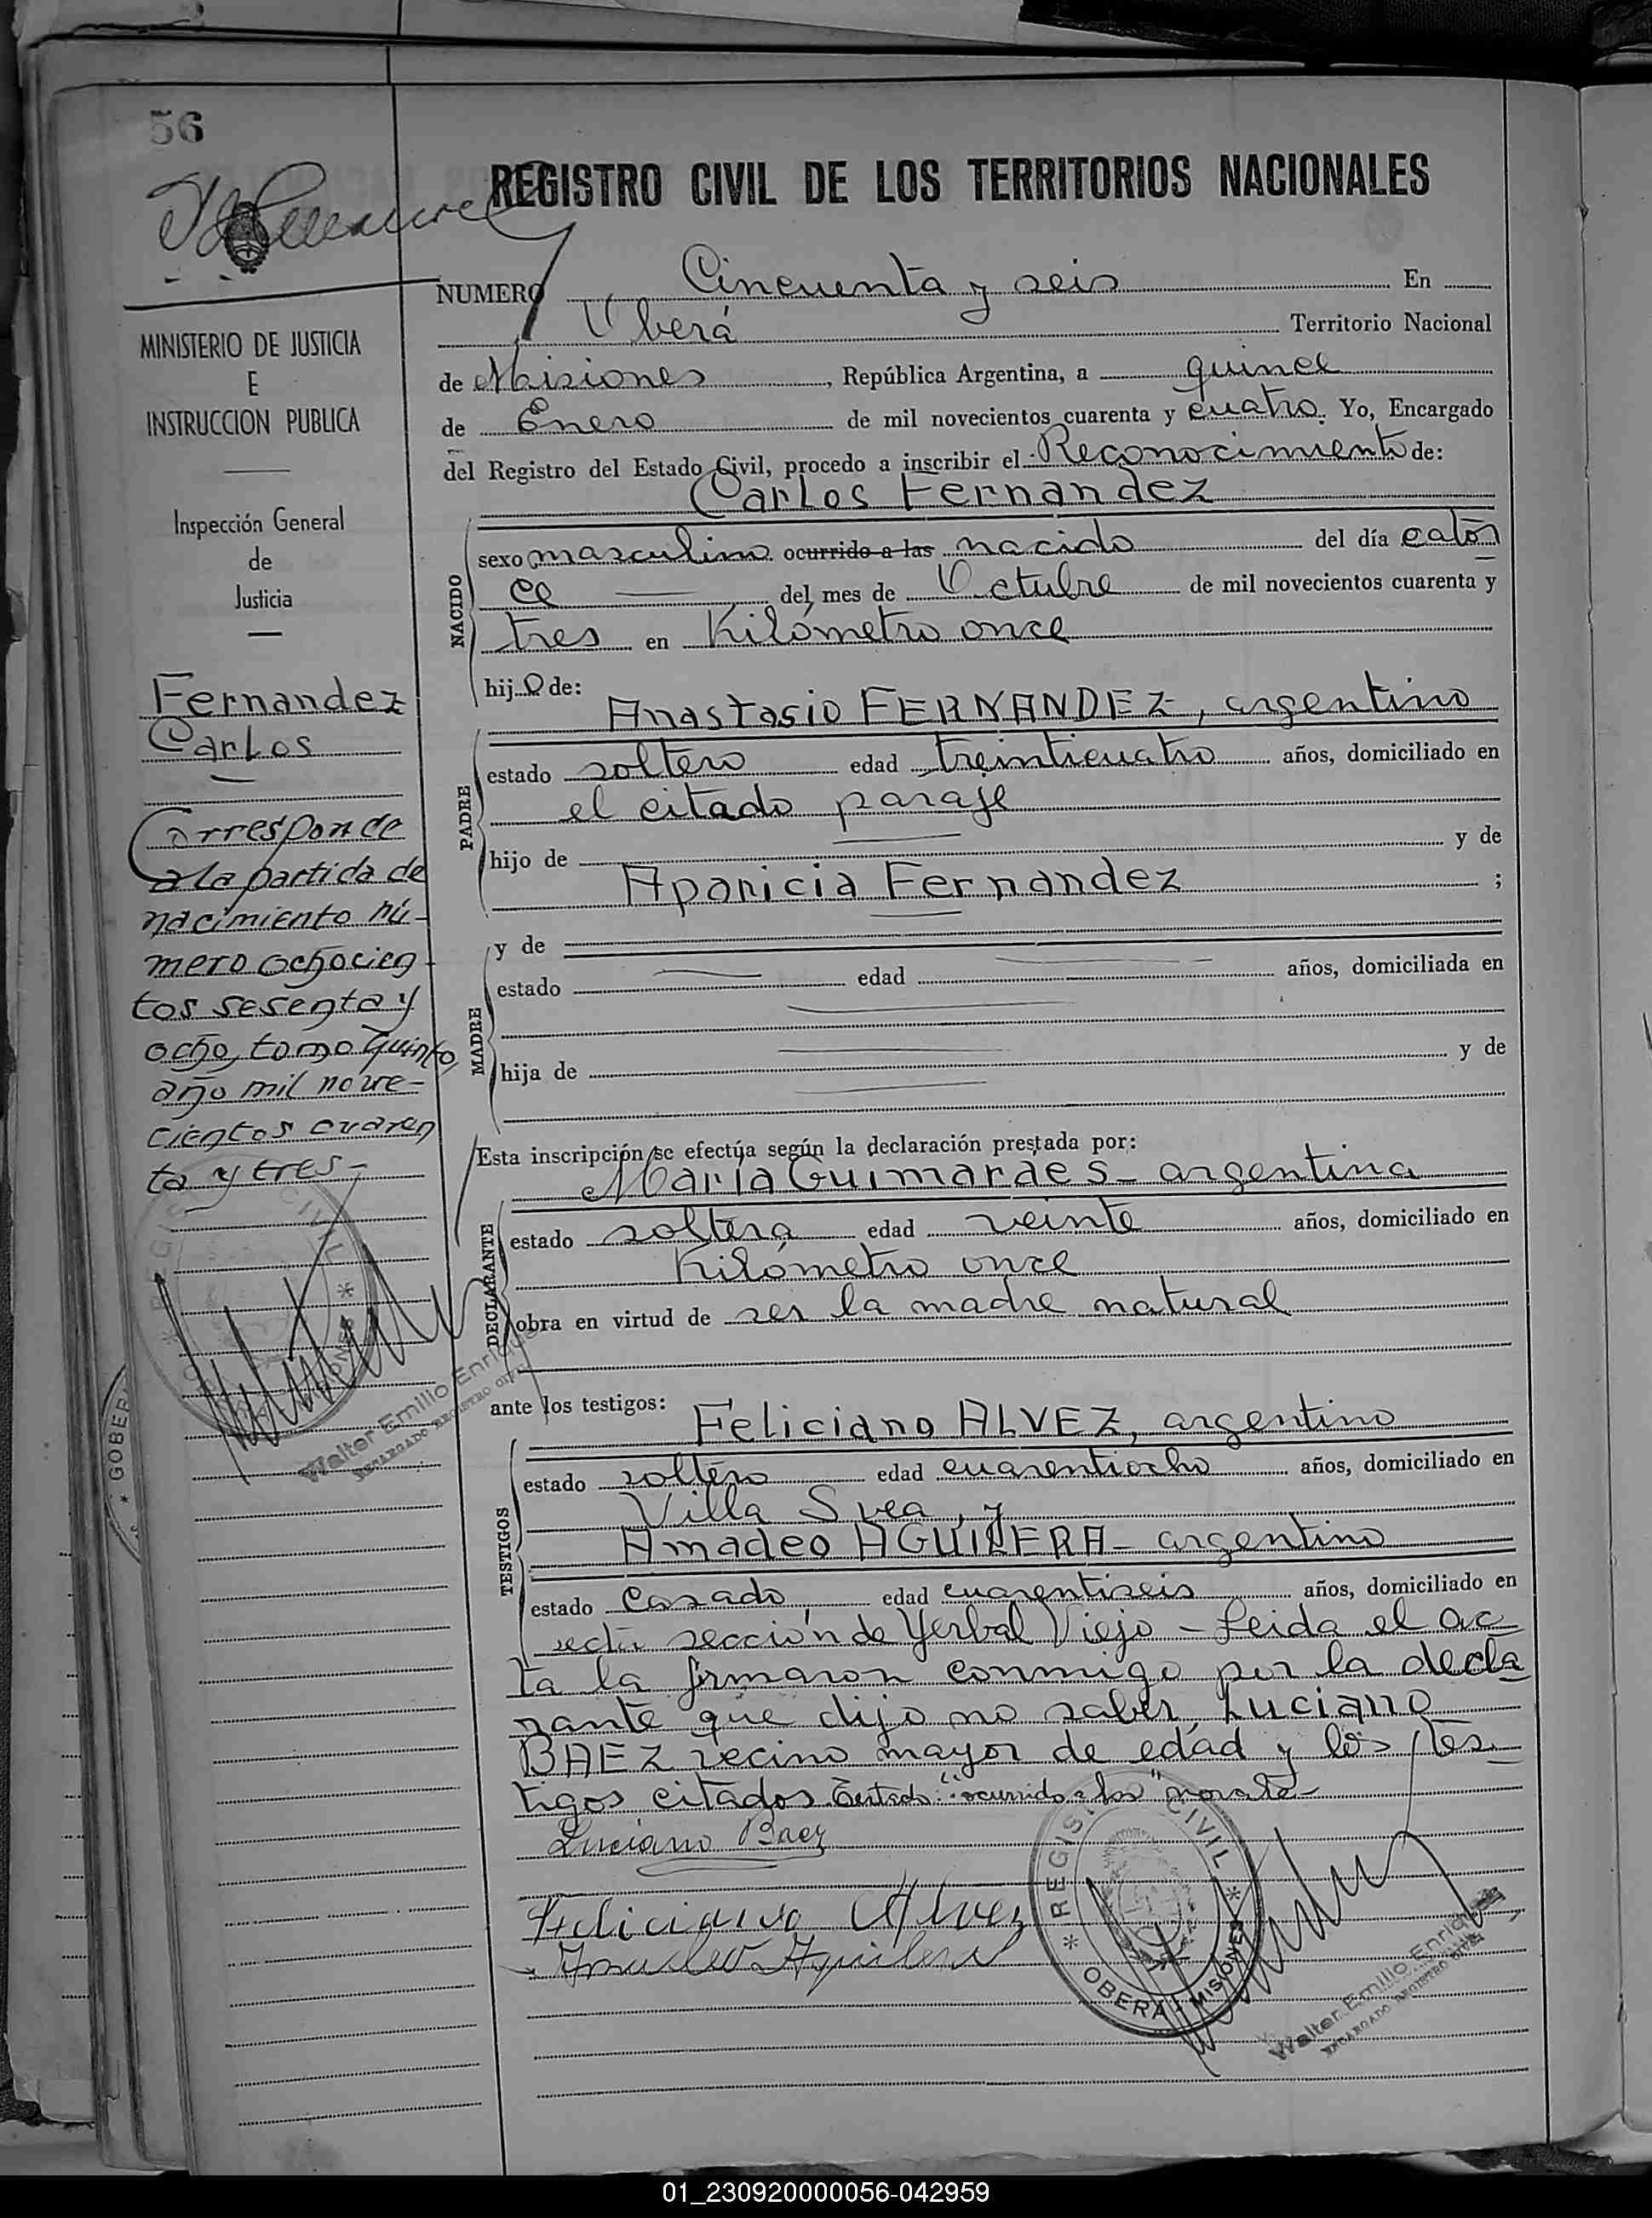 56
REGISTRO CIVIL DE LOS TERRITORIOS NACIONALES
NUMERO Cincuenta y seis En
Oberá Territorio Nacional
de Misiones, República Argentina, a quince
de Enero de mil novecientos cuarenta y cuatro. Yo, Encargado
del Registro del Estado Civil, procedo a inscribir el Reconocimiento de:
Carlos Fernandez
NACIDO
sexo masculino ocurrido a las nacido del día cator
ce del mes de Octubre de mil novecientos cuarenta y
tres en Kilómetro once
hijo de:
PADRE
Anastasio FERNANDEZ, argentino
estado soltero edad treinticuatro años, domiciliado en
el citado paraje
hijo de y de
Aparicia Fernandez ;
MADRE
y de
estado edad años, domiciliada en
hija de y de
Esta inscripción se efectúa según la declaración prestada por:
DECLARANTE
María Guimaraes - argentina
estado soltera edad veinte años, domiciliado en
Kilómetro once
obra en virtud de ser la madre natural
ante los testigos:
TESTIGOS
Feliciano ALVEZ, argentino
estado soltero edad cuarentiocho años, domiciliado en
Villa Svea, y
Amadeo AGUILERA - argentino
estado casado, edad cuarentiseis años, domiciliado en
secta sección de Yerbal Viejo - Leida el ac
ta la firmaron conmigo por la decla
rante que dijo no saber, Luciano
BAEZ vecino mayor de edad y los tes
tigos citados. Testado: "ocurrido a las" no vale -
Luciano Baez
Feliciano Alvez
Amadeo Aguilera
REGISTRO CIVIL
OBERA MISIONES
Walter Emilio Enriquez
ENCARGADO REGISTRO CIVIL
MINISTERIO DE JUSTICIA
E
INSTRUCCION PUBLICA
Inspección General
de
Justicia
Fernandez
Carlos
Corresponde
a la partida de
nacimiento nú-
mero ochocien
tos sesenta y
ocho, tomo Quinto
año mil nove-
cientos cuaren
ta y tres -
Walter Emilio Enrique
ENCARGADO REGISTRO CIVIL
GOBER
01_230920000056-042959